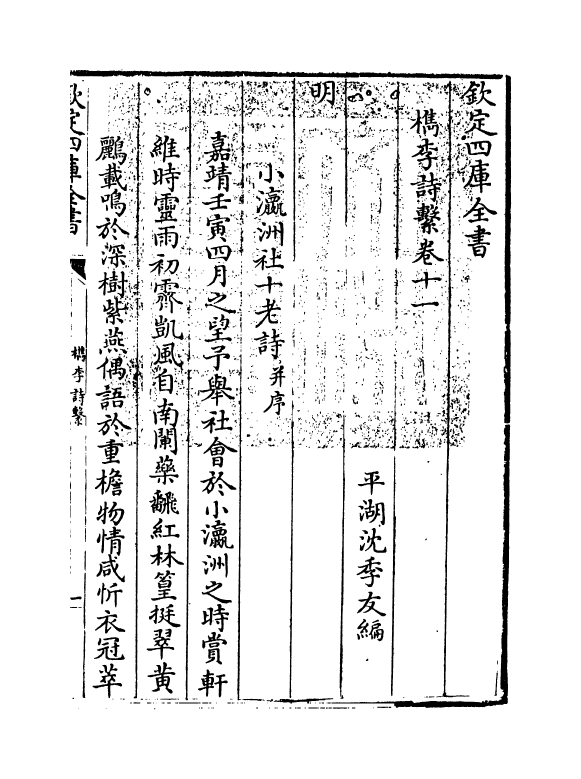 欽定四庫全書
檇李詩繫卷十一
平湖沈季友編
明
小瀛洲社十老詩并序
嘉靖壬寅四月之望予舉社會於小瀛洲之時賞軒
維時靈雨初霽凱風自南闌藥飜紅林篁挺翠黄
鸝載鳴於深樹紫燕偶語於重檐物情咸忻衣冠萃
欽定四庫全書
檇李詩繫
一